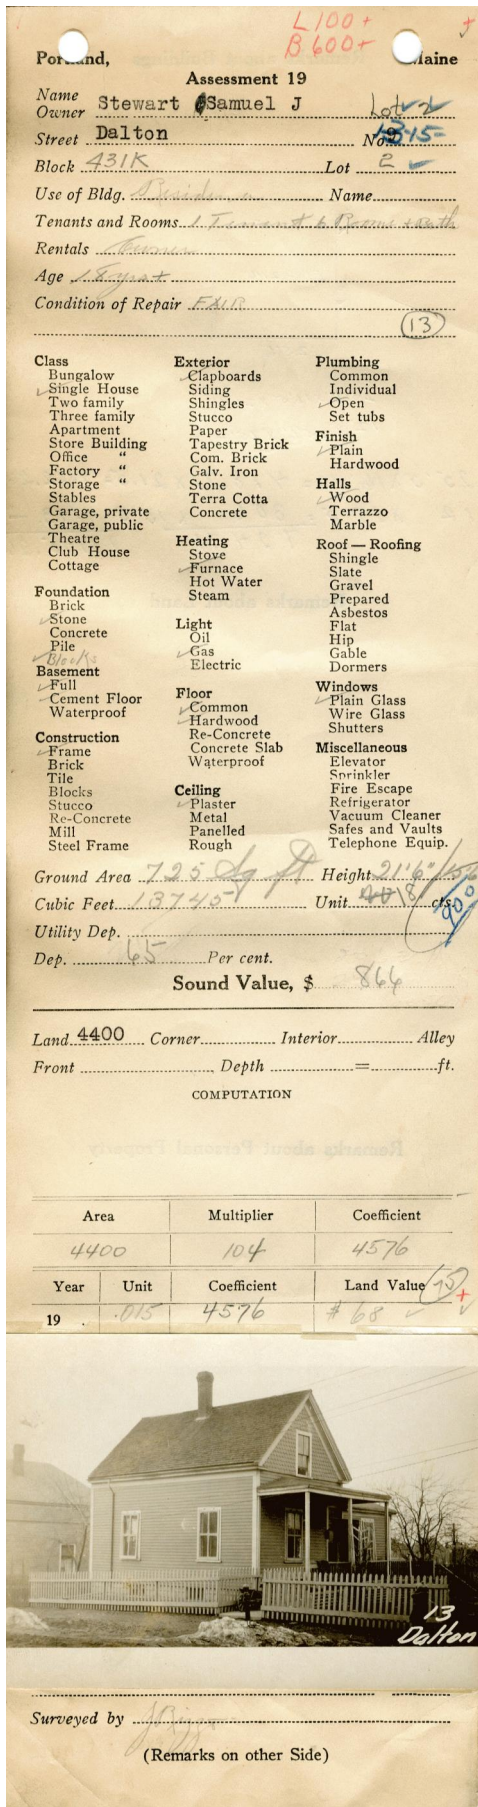 L 100 +
B 600 +
Portland, Maine
Assessment 19
Name
Owner Stewart Samuel J Lot 2
Street Dalton No. 13-15
Block 431K Lot 2
Use of Bldg. Residence Name
Tenants and Rooms 1 Tenant 6 Rooms + Bath
Rentals Owner
Age 18 yrs +
Condition of Repair FAIR
13
Class
Bungalow
Single House
Two family
Three family
Apartment
Store Building
Office "
Factory "
Storage "
Stables
Garage, private
Garage, public
Theatre
Club House
Cottage
Foundation
Brick
Stone
Concrete
Pile
Blocks
Basement
Full
Cement Floor
Waterproof
Construction
Frame
Brick
Tile
Blocks
Stucco
Re-Concrete
Mill
Steel Frame
Exterior
Clapboards
Siding
Shingles
Stucco
Paper
Tapestry Brick
Com. Brick
Galv. Iron
Stone
Terra Cotta
Concrete
Heating
Stove
Furnace
Hot Water
Steam
Light
Oil
Gas
Electric
Floor
Common
Hardwood
Re-Concrete
Concrete Slab
Waterproof
Ceiling
Plaster
Metal
Panelled
Rough
Plumbing
Common
Individual
Open
Set tubs
Finish
Plain
Hardwood
Halls
Wood
Terrazzo
Marble
Roof — Roofing
Shingle
Slate
Gravel
Prepared
Asbestos
Flat
Hip
Gable
Dormers
Windows
Plain Glass
Wire Glass
Shutters
Miscellaneous
Elevator
Sprinkler
Fire Escape
Refrigerator
Vacuum Cleaner
Safes and Vaults
Telephone Equip.
Ground Area 725 Sq ft Height 21'6"
Cubic Feet 13745 Unit 18 cts. 900
Utility Dep.
Dep. 65 Per cent.
Sound Value, $ 866
Land 4400 Corner Interior Alley
Front Depth = ft.
COMPUTATION
Area Multiplier Coefficient
4400 104 4576
Year Unit Coefficient Land Value 75 +
19 . .015 4576 $ 68
13
Dalton
Surveyed by
(Remarks on other Side)